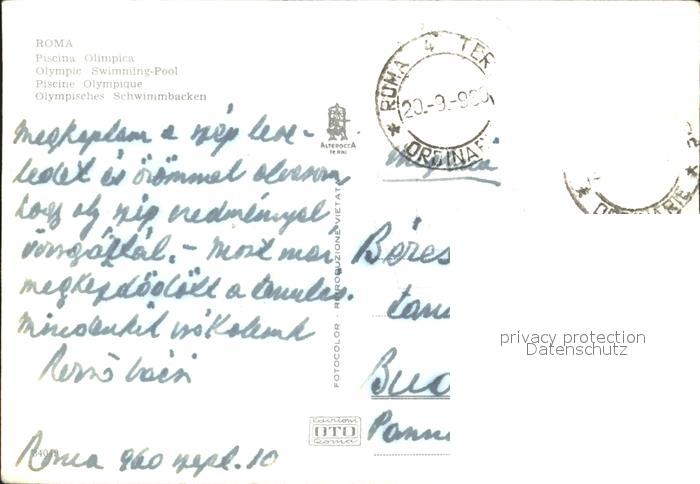 ROMA
Piscina Olimpica
Olympic Swimming-Pool
Piscine Olympique
Olympisches Schwimmbacken
Megkaptam a szép leve-
ledet és örömmel olvasom
hogy oly szép eredménnyel
vizsgáztál. - Most már
megkezdődött a tanulás.
Mindenkit csókolunk
Rezső bácsi
Roma 960 szept. 10
ALTEROCCA
TERNI
FOTOCOLOR - RIPRODUZIONE VIETATA
Edizioni
OTO
Roma
ROMA 4 TER
20.-9.-960
ORDINARIE
ORDINARIE
Béres
tan
Bud
Pann
privacy protection
Datenschutz